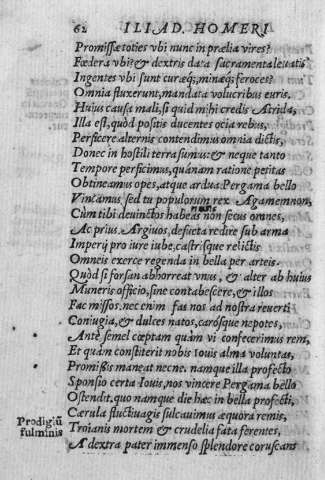 62 ILIAD. HOMERI
Promissæ toties vbi nunc in prælia vires?
Fœdera vbi? & dextris data sacramenta leuatis
Ingentes vbi sunt curæq;, minæq; feroces?
Omnia fluxerunt, mandata volucribus euris.
Huius causa mali, si quid mihi credis Atrida,
Illa est, quòd positis ducentes ocia rebus,
Perficere alternis contendimus omnia dictis,
Donec in hostili terra sumus: & neque tanto
Tempore perficimus, quánam ratione petitas
Obtineamus opes, atque ardua Pergama bello
Vincamus, sed tu populorum rex Agamemnon,
Cùm tibi deuinctos habeas non secus omnes,
Ac prius. Argiuos, desueta redire sub arma
Imperij pro iure iube, castrisque relictis
Omneis exerce regenda in bella per arteis.
Quòd si forsan abhorreat vnus, & alter ab huius
Muneris officio, sine contabescere, & illos
Fac missos. nec enim fas nos ad nostra reuerti
Coniugia, & dulces natos, carósque nepotes,
Antè semel cœptam quàm vi confecerimus rem,
Et quàm constiterit nobis Iouis alma voluntas,
Promissis maneat necne. namque illa profectò
Sponsio certa Iouis, nos vincere Pergama bello
Ostendit, quo namque die hæc in bella profecti,
Cærula fluctiuagis sulcauimus æquora remis,
Prodigiũ
fulminis
Troianis mortem & crudelia fata ferentes,
A dextra pater immenso splendore coruscans